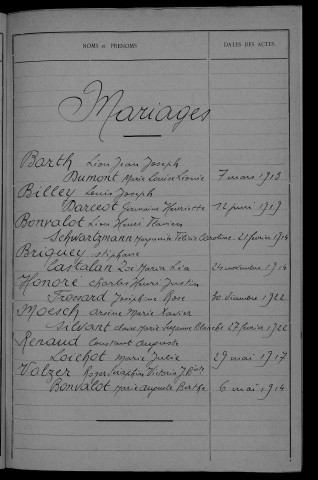 NOMS ET PRÉNOMS DATES DES ACTES
Mariages
Barth Léon Jean Joseph
Dumont Marie Louise Léonie 7 mars 1913
Billey Louis Joseph
Darcot Germaine Henriette 12 juin 1919
Bonvalot Henri
Schwartzmann Caroline 21 février 1914
Briguey Stéphane
Castalan Zoé Maria Léa 24 novembre 1914
Honoré Charles Henri Justin
Frossard Joséphine Rose 30 décembre 1922
Moesch Arsène Marie Xavier
Sivant Marie Suzanne Blanche 27 février 1922
Renaud Constant Auguste
Loichot Marie Julie 29 mai 1917
Valzer Roger Séraphin Victorin
Bonvalot Marie Auguste Berthe 6 mai 1914